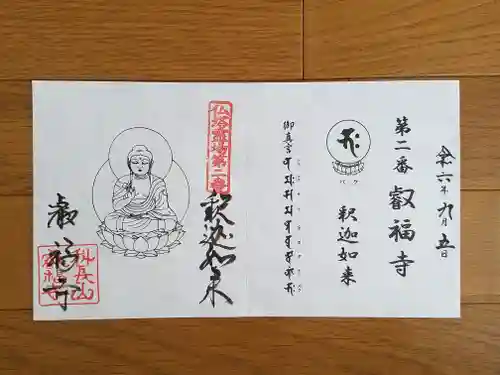 令六年九月五日
第二番 叡福寺
釈迦如来
バク
御真言
仏塔霊場第二番
釈迦如来
叡福寺
科長山
叡福寺